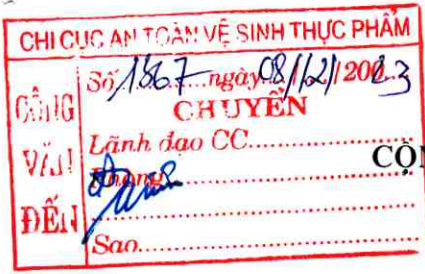 CHI CỤC AN TOÀN VỆ SINH THỰC PHẨM
CÔNG VĂN ĐẾN
Số 1867 ngày 08/12/2023
CHUYỂN
Lãnh đạo CC
Phòng
CỘN
Sao